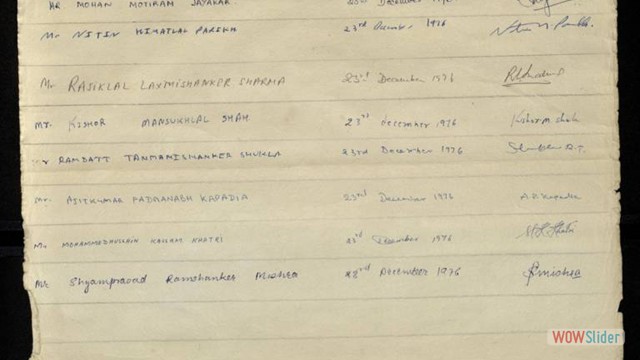 MR MOHAN MOTIRAM JAYAKAR December
Mr NITIN HIMATLAL PARIKH 23rd December 1976
Mr RASIKLAL LAXMISHANKER SHARMA 23rd December 1976
MR. KISHOR MANSUKHLAL SHAH 23rd December 1976 Kishor M Shah
RAMDATT TANMANISHANKER SHUKLA 23rd December 1976
Mr. ASITKUMAR PADMANABH KAPADIA 23rd December 1976 A P Kapadia
Mr. 23rd December 1976
Mr Shyamprasad Ramshanker Mishra December 1976
WOWSlider